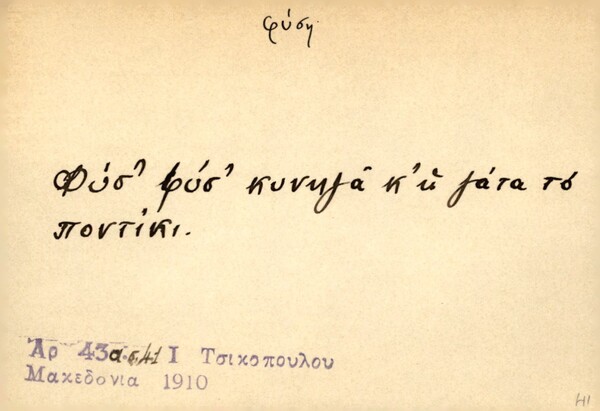 φύση
Φύσ' φύσ' κυνηγᾶ κ' ἡ γάτα τό
ποντίκι.
Αρ 43α σ.41 Ι Τσικοπουλου
Μακεδονια 1910
41